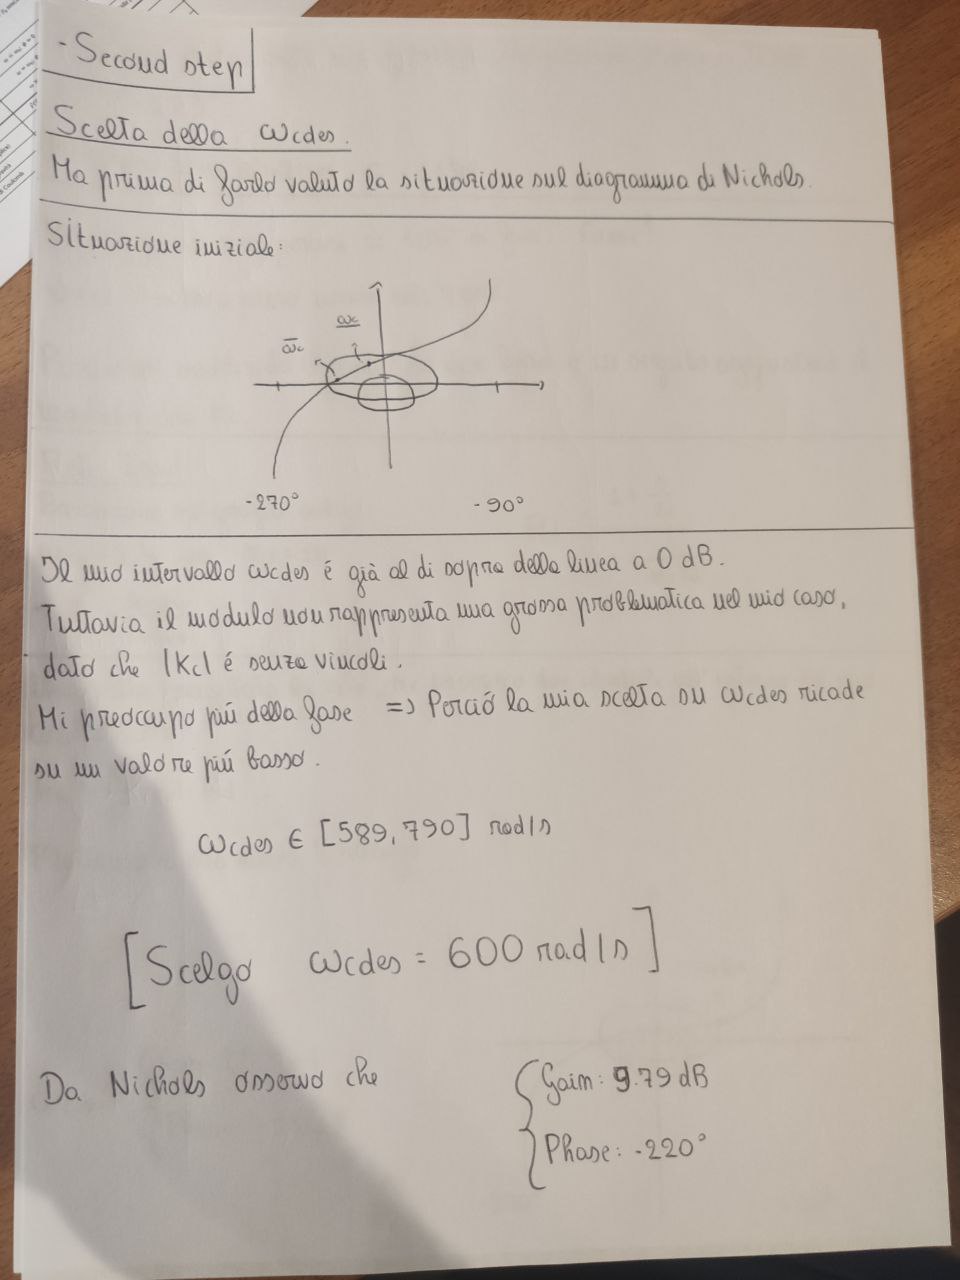 - Second step
Scelta della ωcdes.
Ma prima di farlo valuto la situazione sul diagramma di Nichols.
Situazione iniziale:
ωc
ωc
-270°
-90°
Il mio intervallo ωcdes é giá al di sopra della linea a 0 dB.
Tuttavia il modulo non rappresenta una grossa problematica nel mio caso,
dato che |Kc| é senza vincoli.
Mi preoccupo piú della fase => Perció la mia scelta su ωcdes ricade
su un valore piú basso.
ωcdes ∈ [589,790] rad/s
[Scelgo ωcdes = 600 rad/s]
Da Nichols osservo che
Gain: 9.79 dB
Phase: -220°